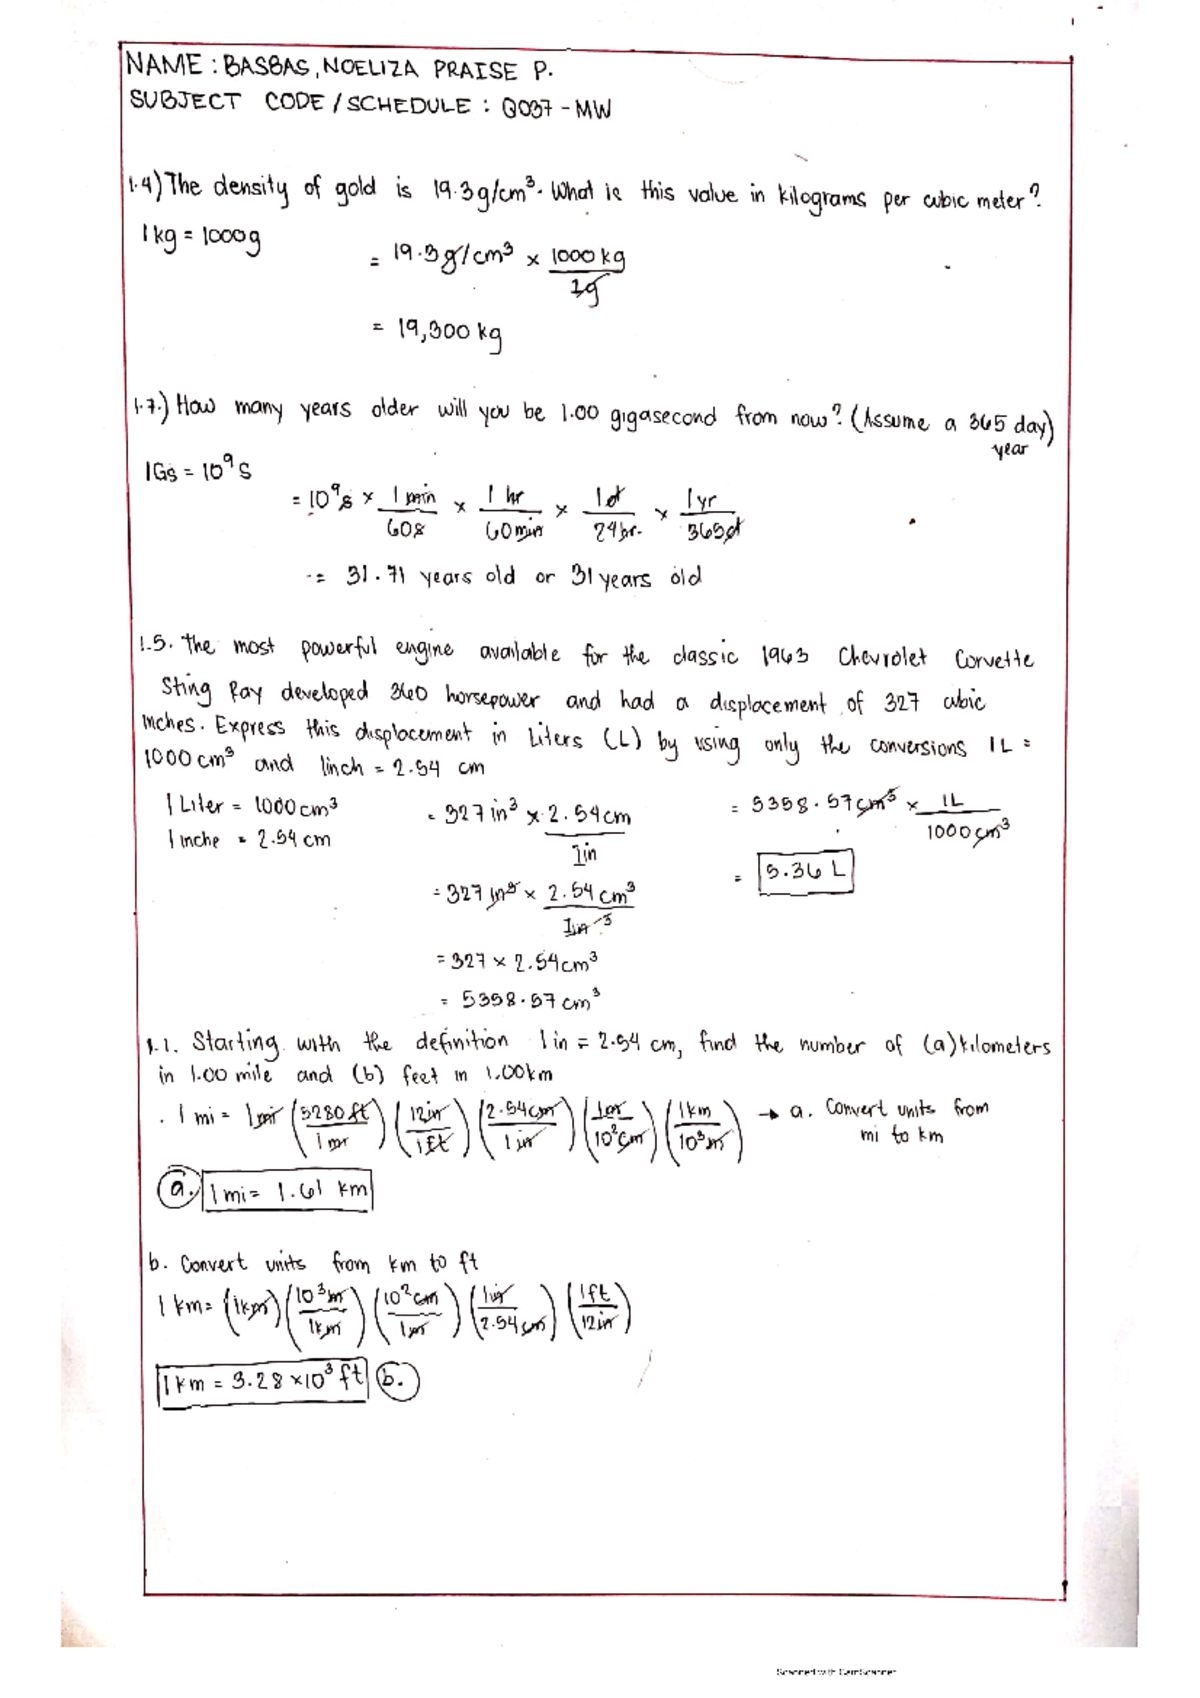 NAME : BASBAS, NOELIZA PRAISE P.
SUBJECT CODE / SCHEDULE : Q037 - MW
1.4) The density of gold is 19.3 g/cm³. What is this value in kilograms per cubic meter?
1 kg = 1000 g
= 19.3 g/cm³ × 1000 kg / 1g
= 19,300 kg
1.7.) How many years older will you be 1.00 gigasecond from now? (Assume a 365 day)
year
1Gs = 10⁹ s
= 10⁹ s × 1 min / 60s × 1 hr / 60 min × 1 d / 24 hr. × 1 yr / 365 d
= 31.71 years old or 31 years old
1.5. The most powerful engine available for the classic 1963 Chevrolet Corvette
Sting Ray developed 360 horsepower and had a displacement of 327 cubic
inches. Express this displacement in Liters (L) by using only the conversions 1 L =
1000 cm³ and 1inch = 2.54 cm
1 Liter = 1000 cm³
1 inche = 2.54 cm
= 327 in³ × 2.54 cm / 1in
= 327 in³ × 2.54 cm³ / 1in³
= 327 × 2.54 cm³
= 5358.57 cm³
= 5358.57 cm³ × 1L / 1000 cm³
= 5.36 L
1.1. Starting with the definition 1 in = 2.54 cm, find the number of (a) kilometers
in 1.00 mile and (b) feet in 1.00km
. 1 mi = 1 mi (5280 ft / 1 mi) (12in / 1ft) (2.54cm / 1 in) (1m / 10² cm) (1km / 10³ m) → a. Convert units from
mi to km
a. 1 mi = 1.61 km
b. Convert units from km to ft
1 km = (1km) (10³ m / 1km) (10² cm / 1m) (1in / 2.54 cm) (1ft / 12in)
1 km = 3.28 ×10³ ft b.
Scanned with CamScanner